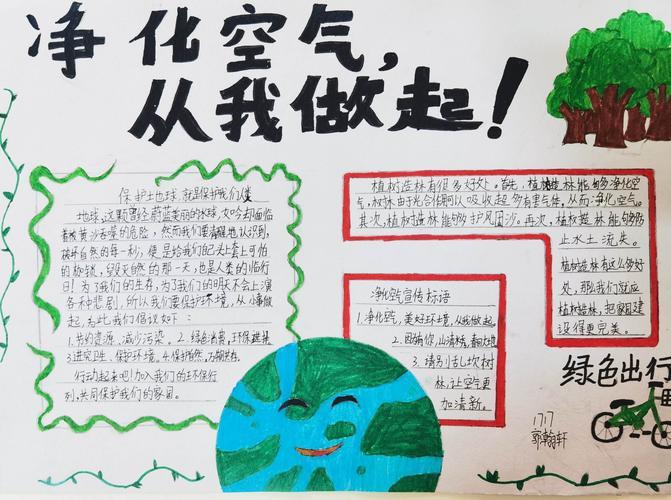 净化空气,
从我做起!
保护土地球,就是保护我们
地球,这颗曾经蔚蓝美丽的水球,如今却面临
着被黄沙吞噬的危险,然而我们要清醒地认识到,
破坏自然的每一秒,便是给我们的头上套上可怕
的枷锁,毁灭自然的那一天,也是人类的临行
日!为了我们的生存,为了我们的明天不会上演
各种悲剧,所以我们要保护环境,从小事做
起,为此我们倡议如下:
1.节约资源,减少污染。2.绿色消费,环保选购
3.讲究卫生,保护环境。4.保护自然,万物共存。
行动起来吧!加入我们的环保行
列,共同保护我们的家园。
植树造林有很多好处。首先,植树造林能够净化空
气,树林由于光合作用可以吸收超多有害气体,从而净化空气。
其次,植树造林能够护风固沙。再次,植树造林能够防
止水土流失。
植树造林有这么多好
处,那么我们就应
植树造林,把家园建
设得更完美。
净化空气宣传标语
1.净化空气,美好环境,从我做起。
2.因有你,山清林秀,春回大地
3.请别乱坎树
林,让空气更
加清新。
绿色出行
1717
郭翰轩